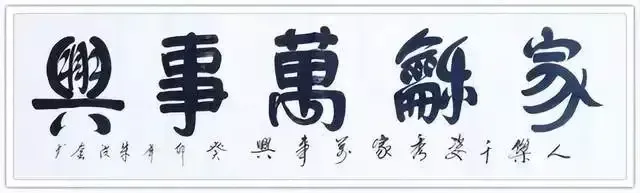 家龢萬事興
人千姿秀家万事興癸卯年朱金书